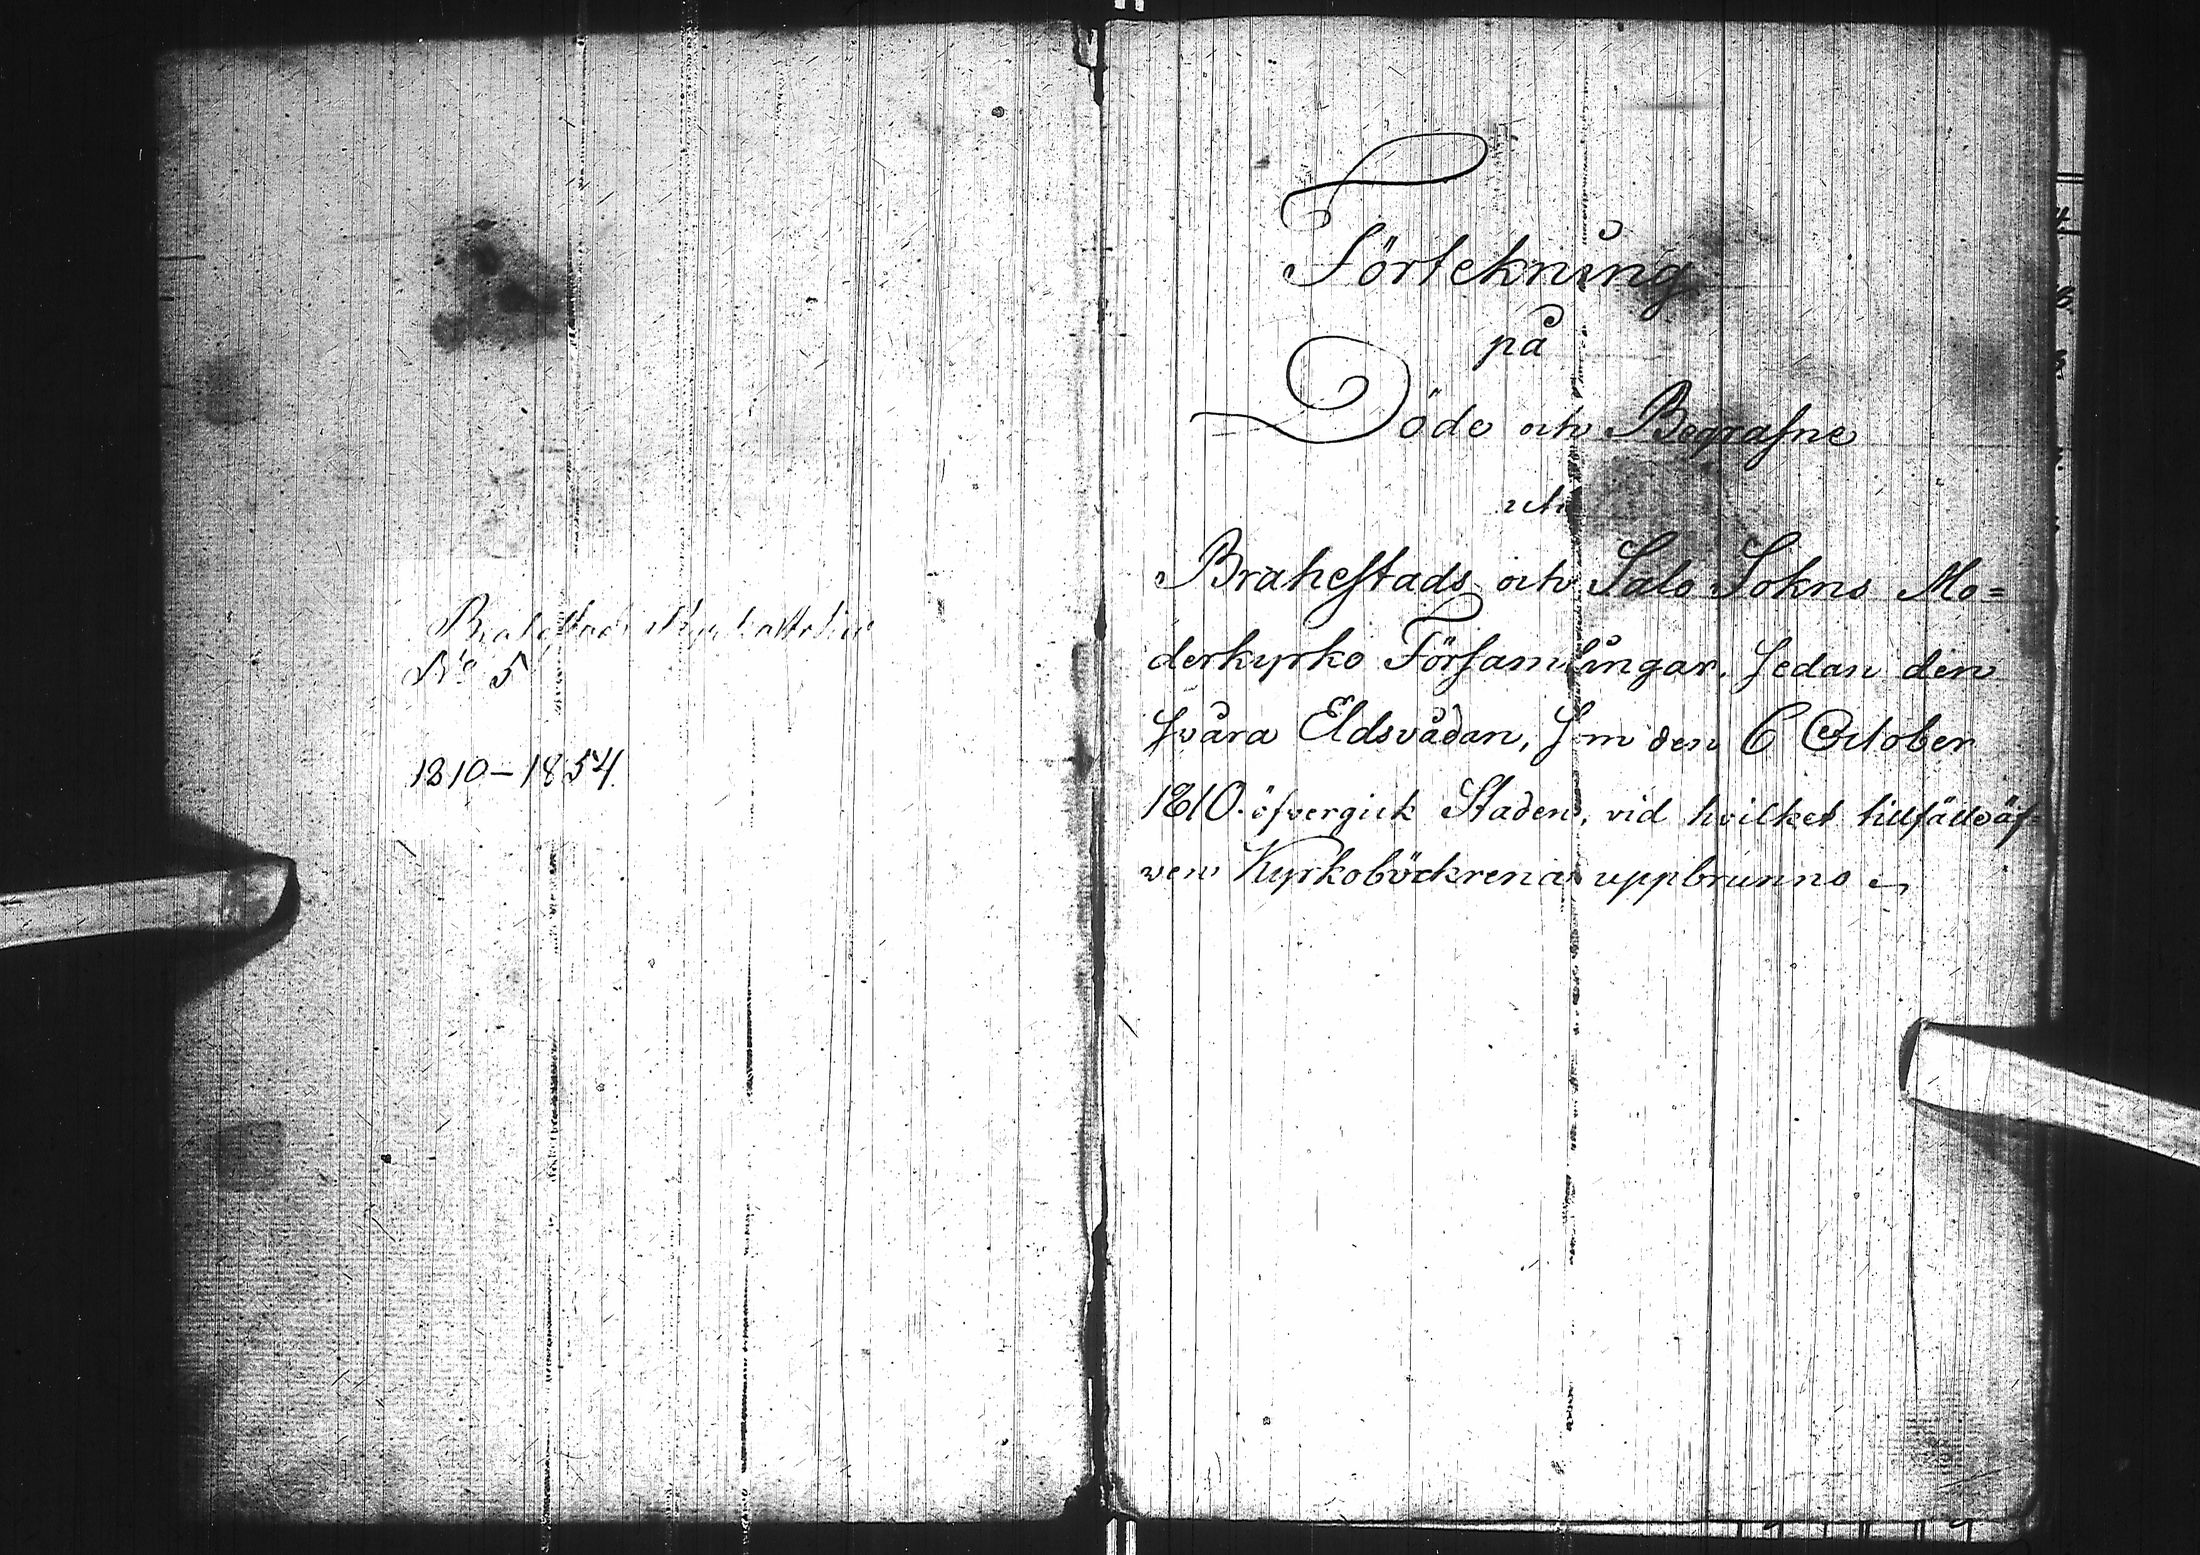 Brahestads Kyrko Arkiv
No 5
1810–1854.
Förtekning
på
Döde och Begrafne
uti
Brahestads och Salo Sokns Mo=
derkyrko Församlingar, sedan den
svåra Eldsvådan, som den 6 October
1810. öfvergick Staden, vid hvilket tillfälle äf=
ven Kyrkoböckrena uppbrunno